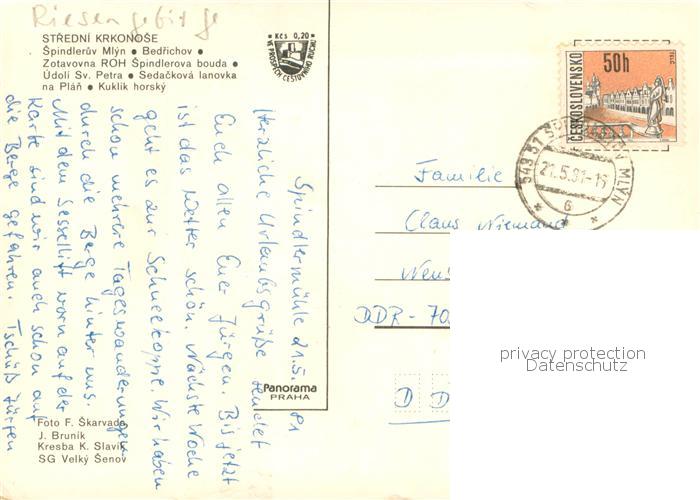 Riesengebirge
STŘEDNÍ KRKONOŠE
Špindlerův Mlýn • Bedřichov •
Zotavovna ROH Špindlerova bouda •
Údolí Sv. Petra • Sedačková lanovka
na Pláň • Kuklík horský
Kčs 0,20
VE PROSPĚCH CESTOVNÍHO RUCHU
50h
ČESKOSLOVENSKO
TELČ
543 51 ŠPINDLERŮV MLÝN
21.5.81-16
6
Spindlermühle 21.5.81
Herzliche Urlaubsgrüße sendet
Euch allen Euer Jürgen. Bis jetzt
ist das Wetter schön. Nächste Woche
geht es zur Schneekoppe. Wir haben
schon mehrere Tageswanderungen
durch die Berge hinter uns.
Mit dem Sessellift vorn auf der
Karte sind wir auch schon auf
die Berge gefahren. Tschüß Jürgen
Familie
Claus Niemand
DDR - 70
D D
Panorama
PRAHA
Foto F. Škarvada
J. Bruník
Kresba K. Slavík
SG Velký Šenov
privacy protection
Datenschutz